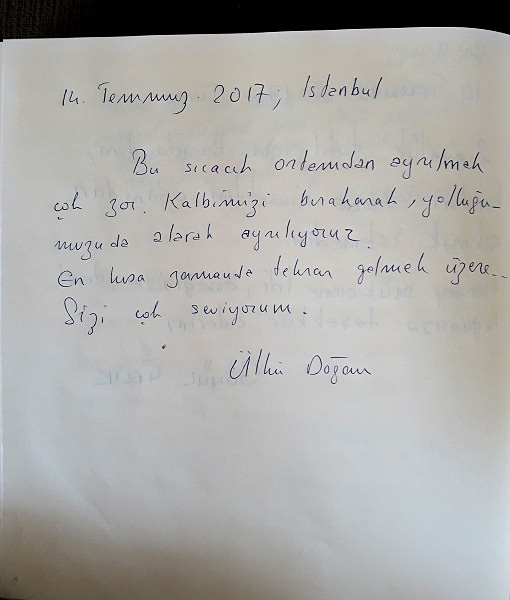 14. Temmuz. 2017; İstanbul
Bu sıcacık ortamdan ayrılmak
çok zor. Kalbimizi bırakarak, yolluğu-
muzuda alarak ayrılıyoruz.
En kısa zamanda tekrar gelmek üzere..
Sizi çok seviyorum.
Ülkü Doğan